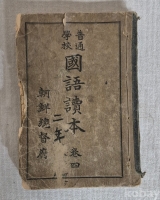 普通
學校
國語讀本
卷四
二年
朝鮮總督府
kobay